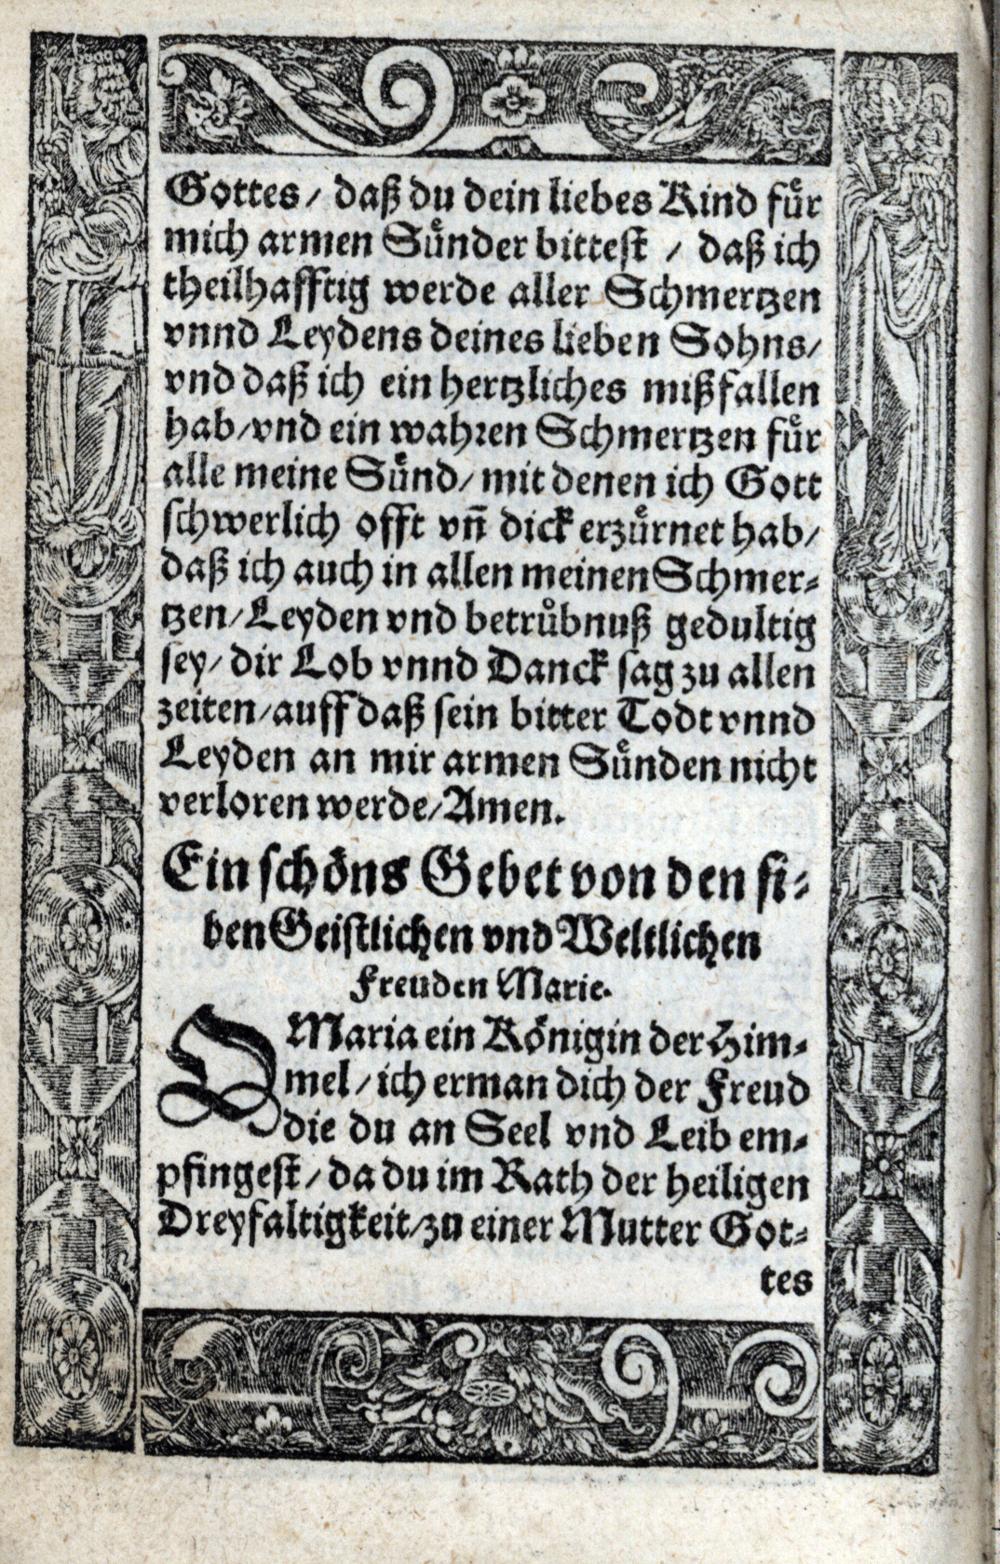 Gottes / daß du dein liebes Kind fuͤr
mich armen Suͤnder bittest / daß ich
theilhafftig werde aller Schmertzen
vnnd Leydens deines lieben Sohns /
vnd daß ich ein hertzliches mißfallen
hab / vnd ein wahꝛen Schmertzen fuͤr
alle meine Suͤnd / mit denen ich Gott
schwerlich offt vñ dick erzuͤrnet hab /
daß ich auch in allen meinen Schmer⸗
tzen / Leyden vnd betruͤbnuß gedultig
sey / dir Lob vnnd Danck sag zu allen
zeiten / auff daß sein bitter Todt vnnd
Leyden an mir armen Suͤnden nicht
verloren werde / Amen.
Ein schoͤns Gebet von den si⸗
ben Geistlichen vnd Weltlichen
Freuden Marie.
O Maria ein Koͤnigin der Him⸗
mel / ich erman dich der Freud
die du an Seel vnd Leib em⸗
pfingest / da du im Rath der heiligen
Dreyfaltigkeit / zu einer Mutter Got⸗
tes